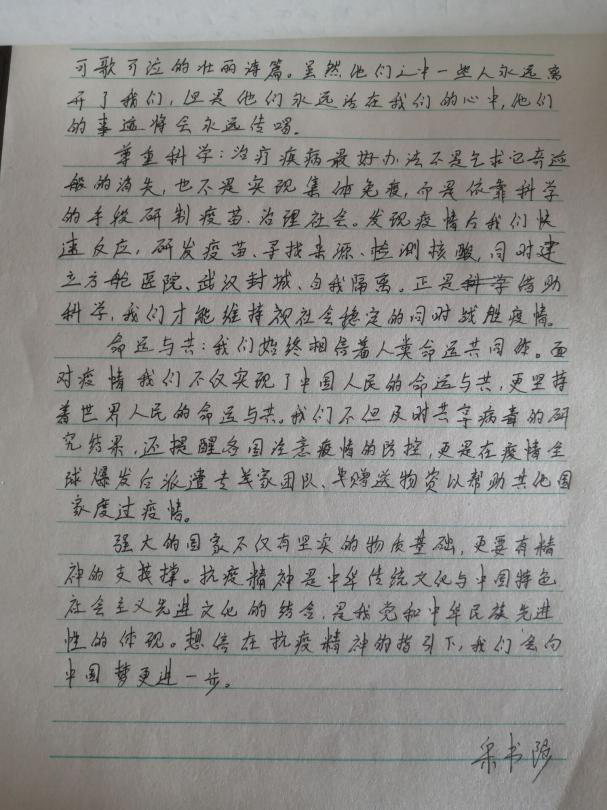 可歌可泣的壮丽诗篇。虽然他们之中一些人永远离
开了我们，但是他们永远活在我们的心中，他们
的事迹将会永远传唱。
尊重科学：治疗疾病最好办法不是乞求它奇迹
般的消失，也不是实现集体免疫，而是依靠科学
的手段研制疫苗、治理社会。发现疫情后我们快
速反应，研发疫苗、寻找来源、检测核酸，同时建
立方舱医院、武汉封城、自我隔离。正是科学借助
科学，我们才能维持社会稳定的同时战胜疫情。
命运与共：我们始终相信着人类命运共同体。面
对疫情我们不仅实现了中国人民的命运与共，更坚持
着世界人民的命运与共。我们不但及时共享病毒的研
究结果，还提醒各国注意疫情的防控，更是在疫情全
球爆发后派遣专家团队、赠送物资以帮助其他国
家度过疫情。
强大的国家不仅有坚实的物质基础，更要有精
神的支撑。抗疫精神是中华传统文化与中国特色
社会主义先进文化的结合，是我党和中华民族先进
性的体现。想信在抗疫精神的指引下，我们会向
中国梦更进一步。